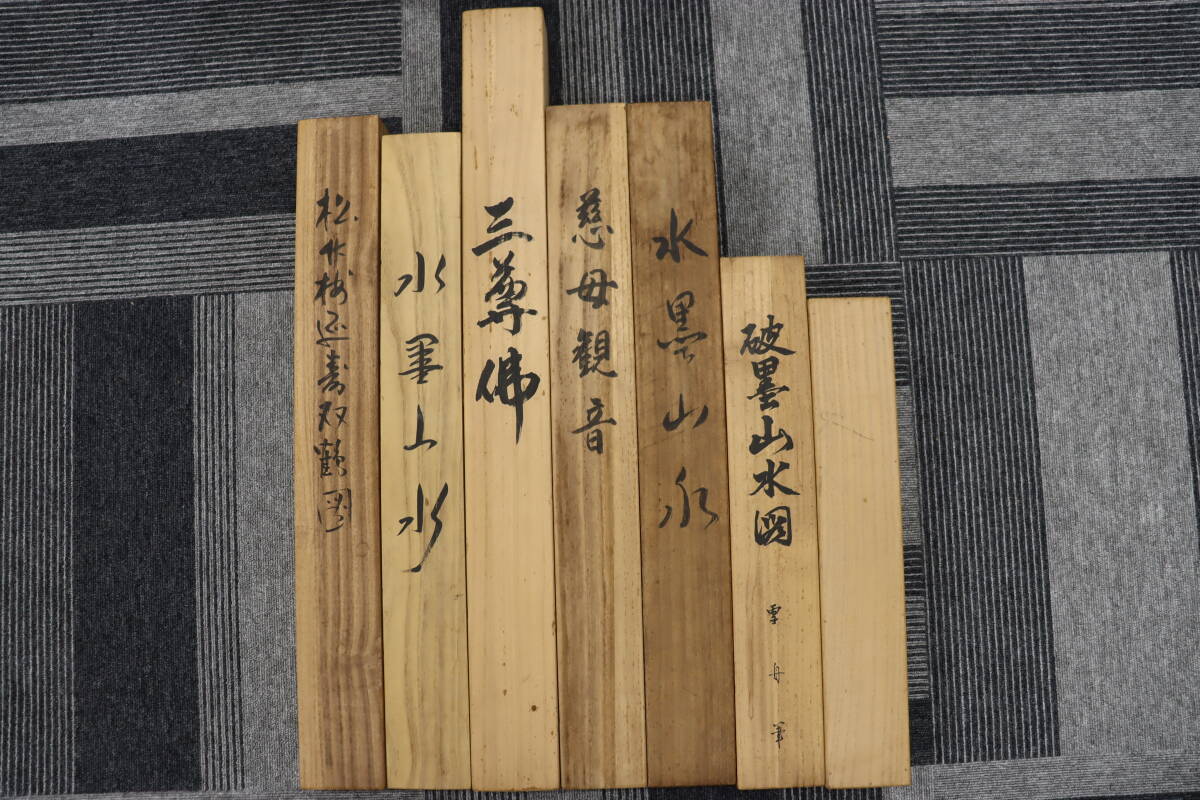 松竹梅延寿双鶴図
水墨山水
三尊佛
慈母観音
水墨山水
破墨山水図
雪舟筆